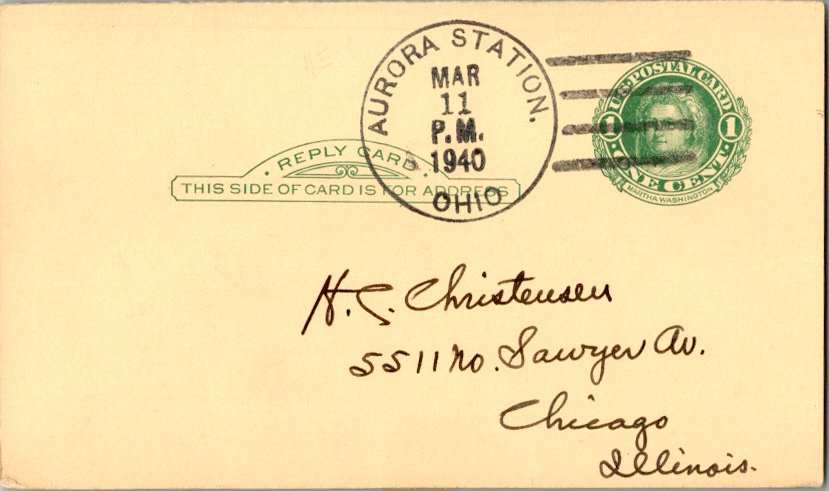 AURORA STATION.
MAR
11
P.M.
1940
OHIO
U.S. POSTAL CARD
1 1
ONE CENT
MARTHA WASHINGTON
REPLY CARD
THIS SIDE OF CARD IS FOR ADDRESS
H. C. Christensen
5511 No. Sawyer Av.
Chicago
Illinois.